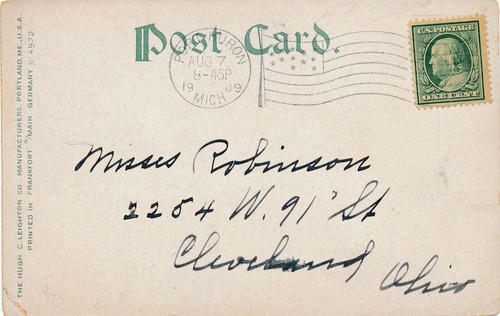 Post Card.
PORT HURON
AUG 7
8-45P
1909
MICH.
U.S. POSTAGE
ONE CENT
Misses Robinson
2254 W. 91st St
Cleveland
Ohio
THE HUGH C. LEIGHTON CO., MANUFACTURERS, PORTLAND, ME., U.S.A.
PRINTED IN FRANKFORT O/MAIN, GERMANY Nº 4972